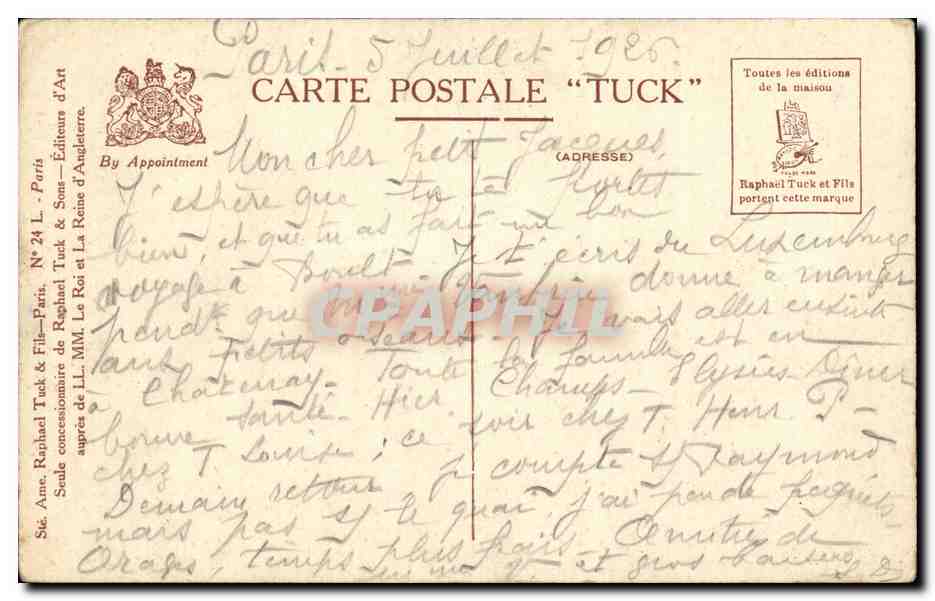 Paris 5 Juillet 1926.
CARTE POSTALE "TUCK"
By Appointment
(ADRESSE)
Toutes les éditions
de la maison
TRADE MARK
Raphaël Tuck et Fils
portent cette marque
Sté. Ame. Raphael Tuck & Fils—Paris. N° 24 L. - Paris
Seule concessionnaire de Raphael Tuck & Sons—Éditeurs d'Art
auprès de LL. MM. Le Roi et La Reine d'Angleterre.
Mon cher petit Jacques,
J'espère que tu te portes
bien, et que tu as fait un bon
voyage à Je t'écris du Luxembourg
pendt que donne à manger
aux petits oiseaux. Je vais aller ensuite
à Châtenay. Toute la famille est en
bonne santé. Hier Champs-Elysées Dîner
chez T. Louise; ce soir chez T. Henr. P-
Demain retour je compte Raymond
mais pas s/ le quai, j'ai peu de
Orages, temps plus frais. de
et gros baisers
CPAPHIL